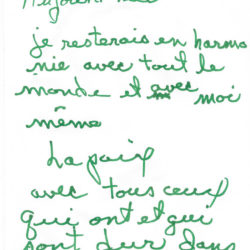 je resterais en harmo
nie avec tout le
monde et avec moi
même
La paix
avec tous ceux
qui ont et qui
sont dur dans